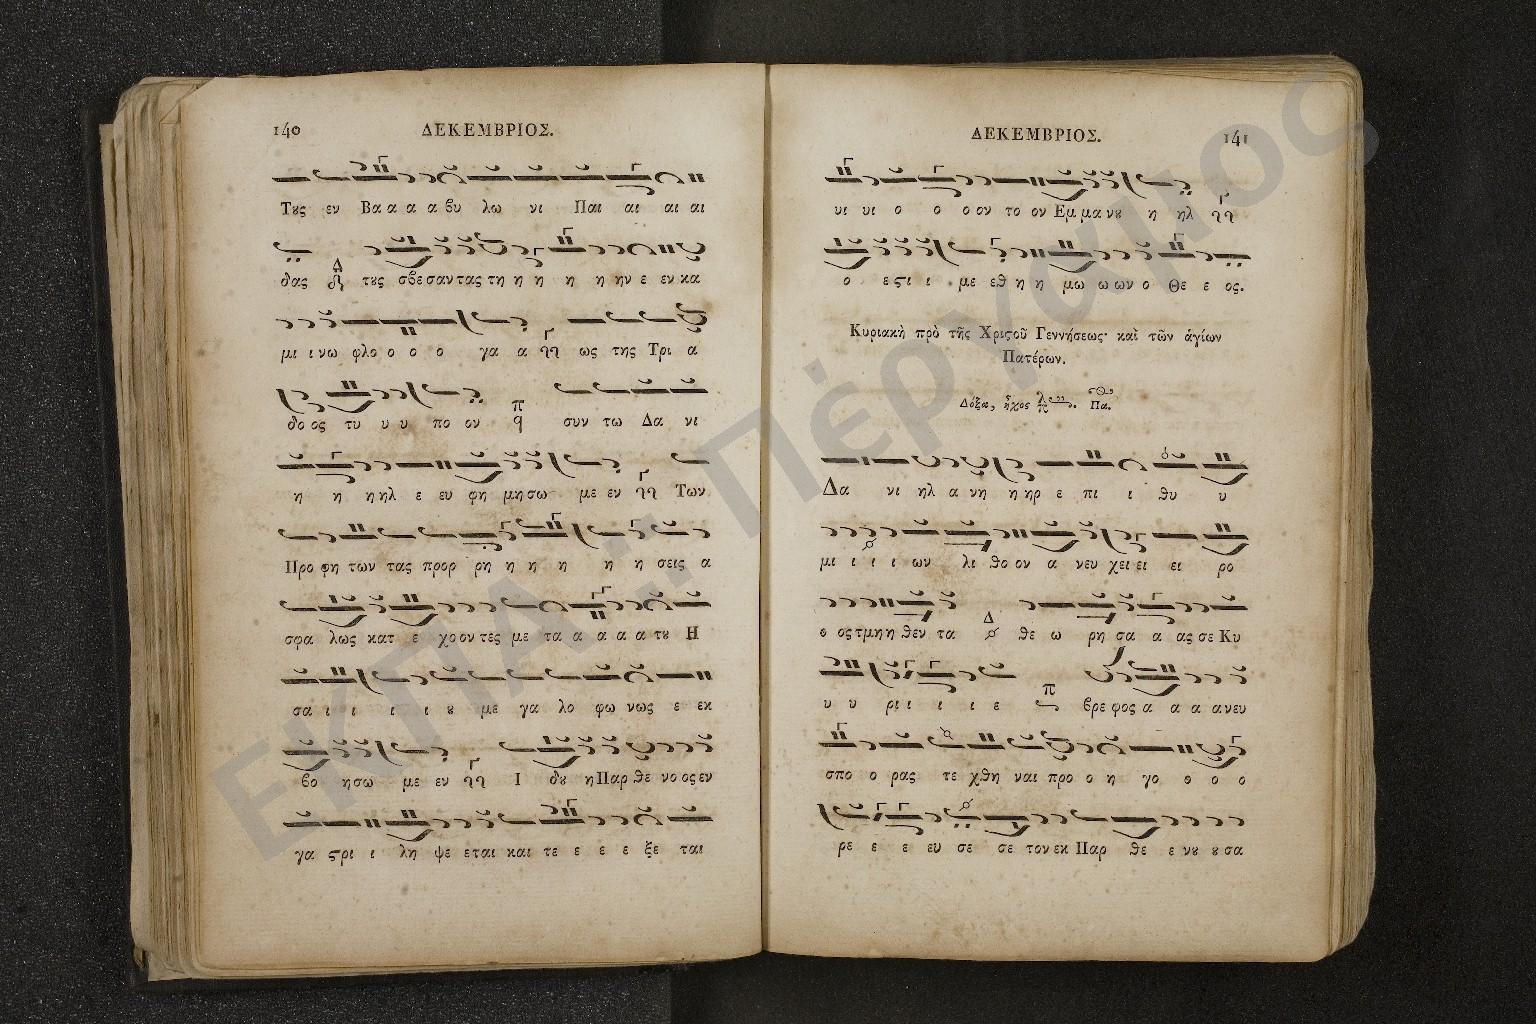 140
ΔΕΚΕΜΒΡΙΟΣ.
Τȣς εν Βα α α α βυ λω νι Παι αι αι αι
δας Δ τȣς σβε σαν τας τη η η η η ην ε εν κα
μι ι νω φλο ο ο ο γα α ως της Τρι α
δο ος τυ υ υ πο ον π q συν τω Δα νι
η η η ηλ ε ευ φη μη σω με εν Των
Προ φη των τας προρ ρη η η η η η σεις α
σφα λως κατ ε χο ον τες με τα α α α α τȣ Η
σα ι ι ι ι ȣ με γα λο φω νως ε εκ
βο η σω με εν Ι δȣ η Παρ θε νο ος εν
γα ϛρι ι λη ψε εται και τε ε ε ε ξε ται
ΔΕΚΕΜΒΡΙΟΣ.
141
υι υι ο ο ο ον το ον Εμ μα νȣ η ηλ
ο ε ϛι ι με εθ η η μω ω ων ο Θε ε ος.
Κυριακὴ πρὸ τῆς Χριϛοῦ Γεννήσεως· καὶ τῶν ἁγίων
Πατέρων.
Δόξα, ἦχος Πα.
Δα νι ηλ α νη η ηρ ε πι ι θυ υ
μι ι ι ι ων λι θο ον α νευ χει ει ει ρο
ο ος τμη η θεν τα Δ θε ω ρη σα α ας σε Κυ
υ υ ρι ι ι ι ε π βρε φος α α α ανευ
σπο ο ρας τε χθη ναι προ ο η γο ο ο ο
ρε ε ε ευ σε σε τον εκ Παρ θε ε νȣ ȣ σα
ΕΚΠΑ.: Πέργαμος